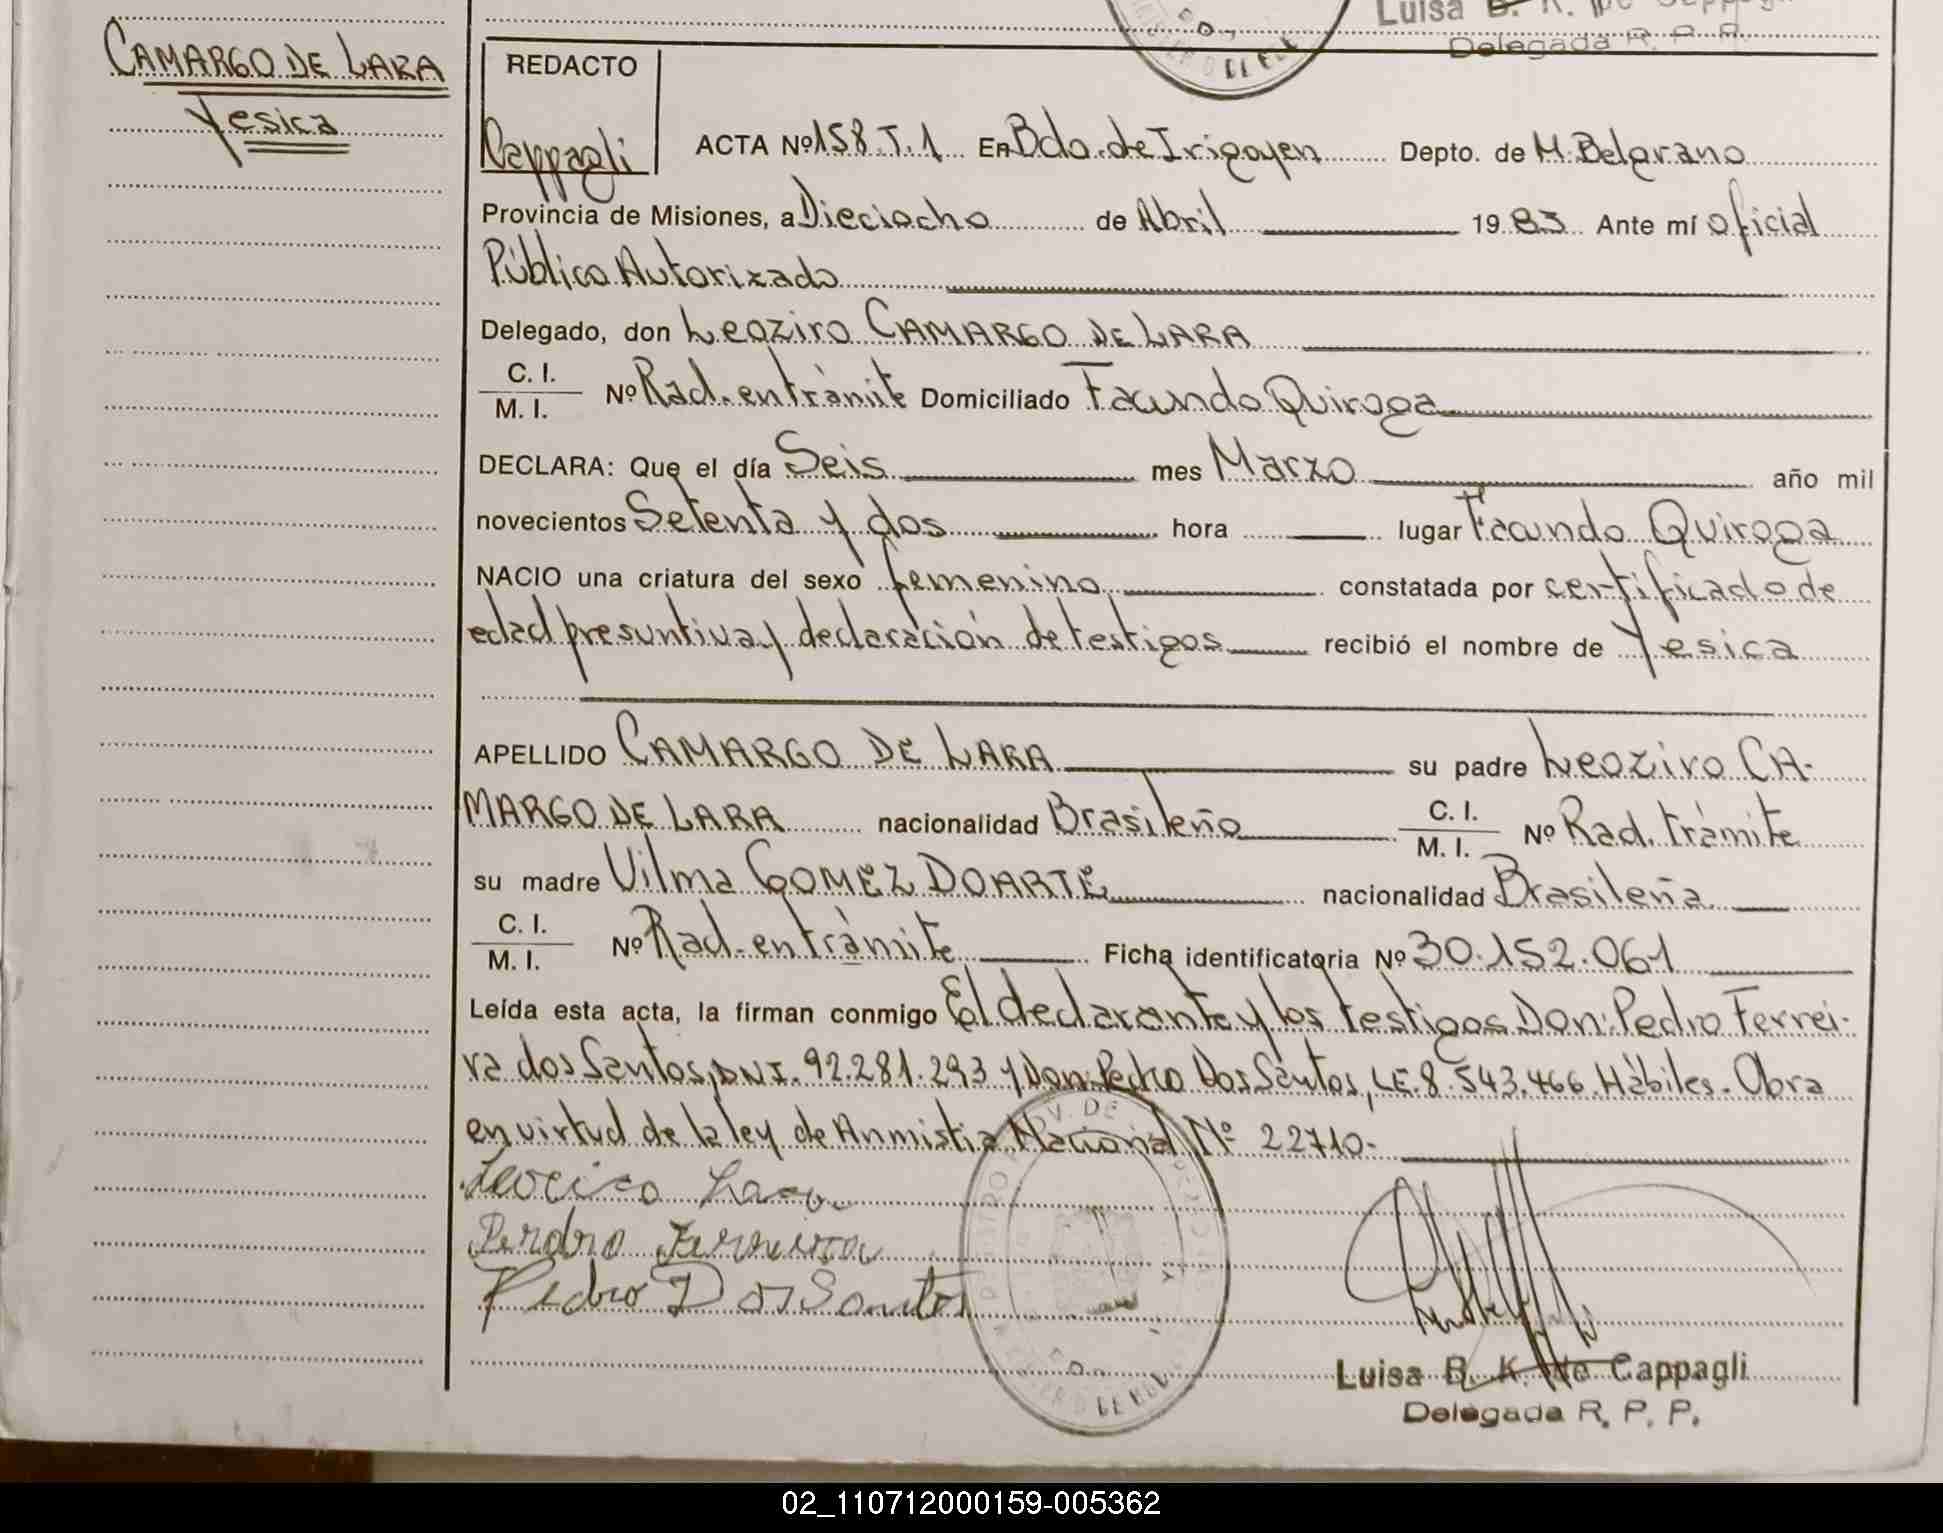 Luisa B. K. de Cappagli
Delegada R. P. P.
CAMARGO DE LARA
Yesica
REDACTO
Cappagli
ACTA Nº 158.T.1 En Bdo. de Irigoyen Depto. de M. Belgrano
Provincia de Misiones, a Dieciocho de Abril 1983 Ante mí oficial
Público Autorizado
Delegado, don Leoziro CAMARGO DE LARA
C. I.
M. I. Nº Rad. en tràmite Domiciliado Facundo Quiroga
DECLARA: Que el día Seis mes Marzo año mil
novecientos Setenta y dos hora lugar Facundo Quiroga
NACIO una criatura del sexo femenino constatada por certificado de
edad presuntiva y declaración de testigos recibió el nombre de Yesica
APELLIDO CAMARGO DE LARA su padre Leoziro CA-
MARGO DE LARA nacionalidad Brasileño C. I. M. I. Nº Rad. tràmite
su madre Vilma GOMEZ DOARTE nacionalidad Brasileña
C. I.
M. I. Nº Rad. en tràmite Ficha identificatoria Nº 30.152.061
Leída esta acta, la firman conmigo El declarante y los testigos Don: Pedro Ferrei-
ra dos Santos, DNI. 92.281.293 y Don: Pedro Dos Santos, LE. 8.543.466. Hàbiles. Obra
en virtud de la ley de Anmistia Nacional Nº 22710-
Leociro Lara
Perdro Ferreira
Pedro Dos Santos
Luisa B. K. de Cappagli
Delegada R. P. P.
02_110712000159-005362